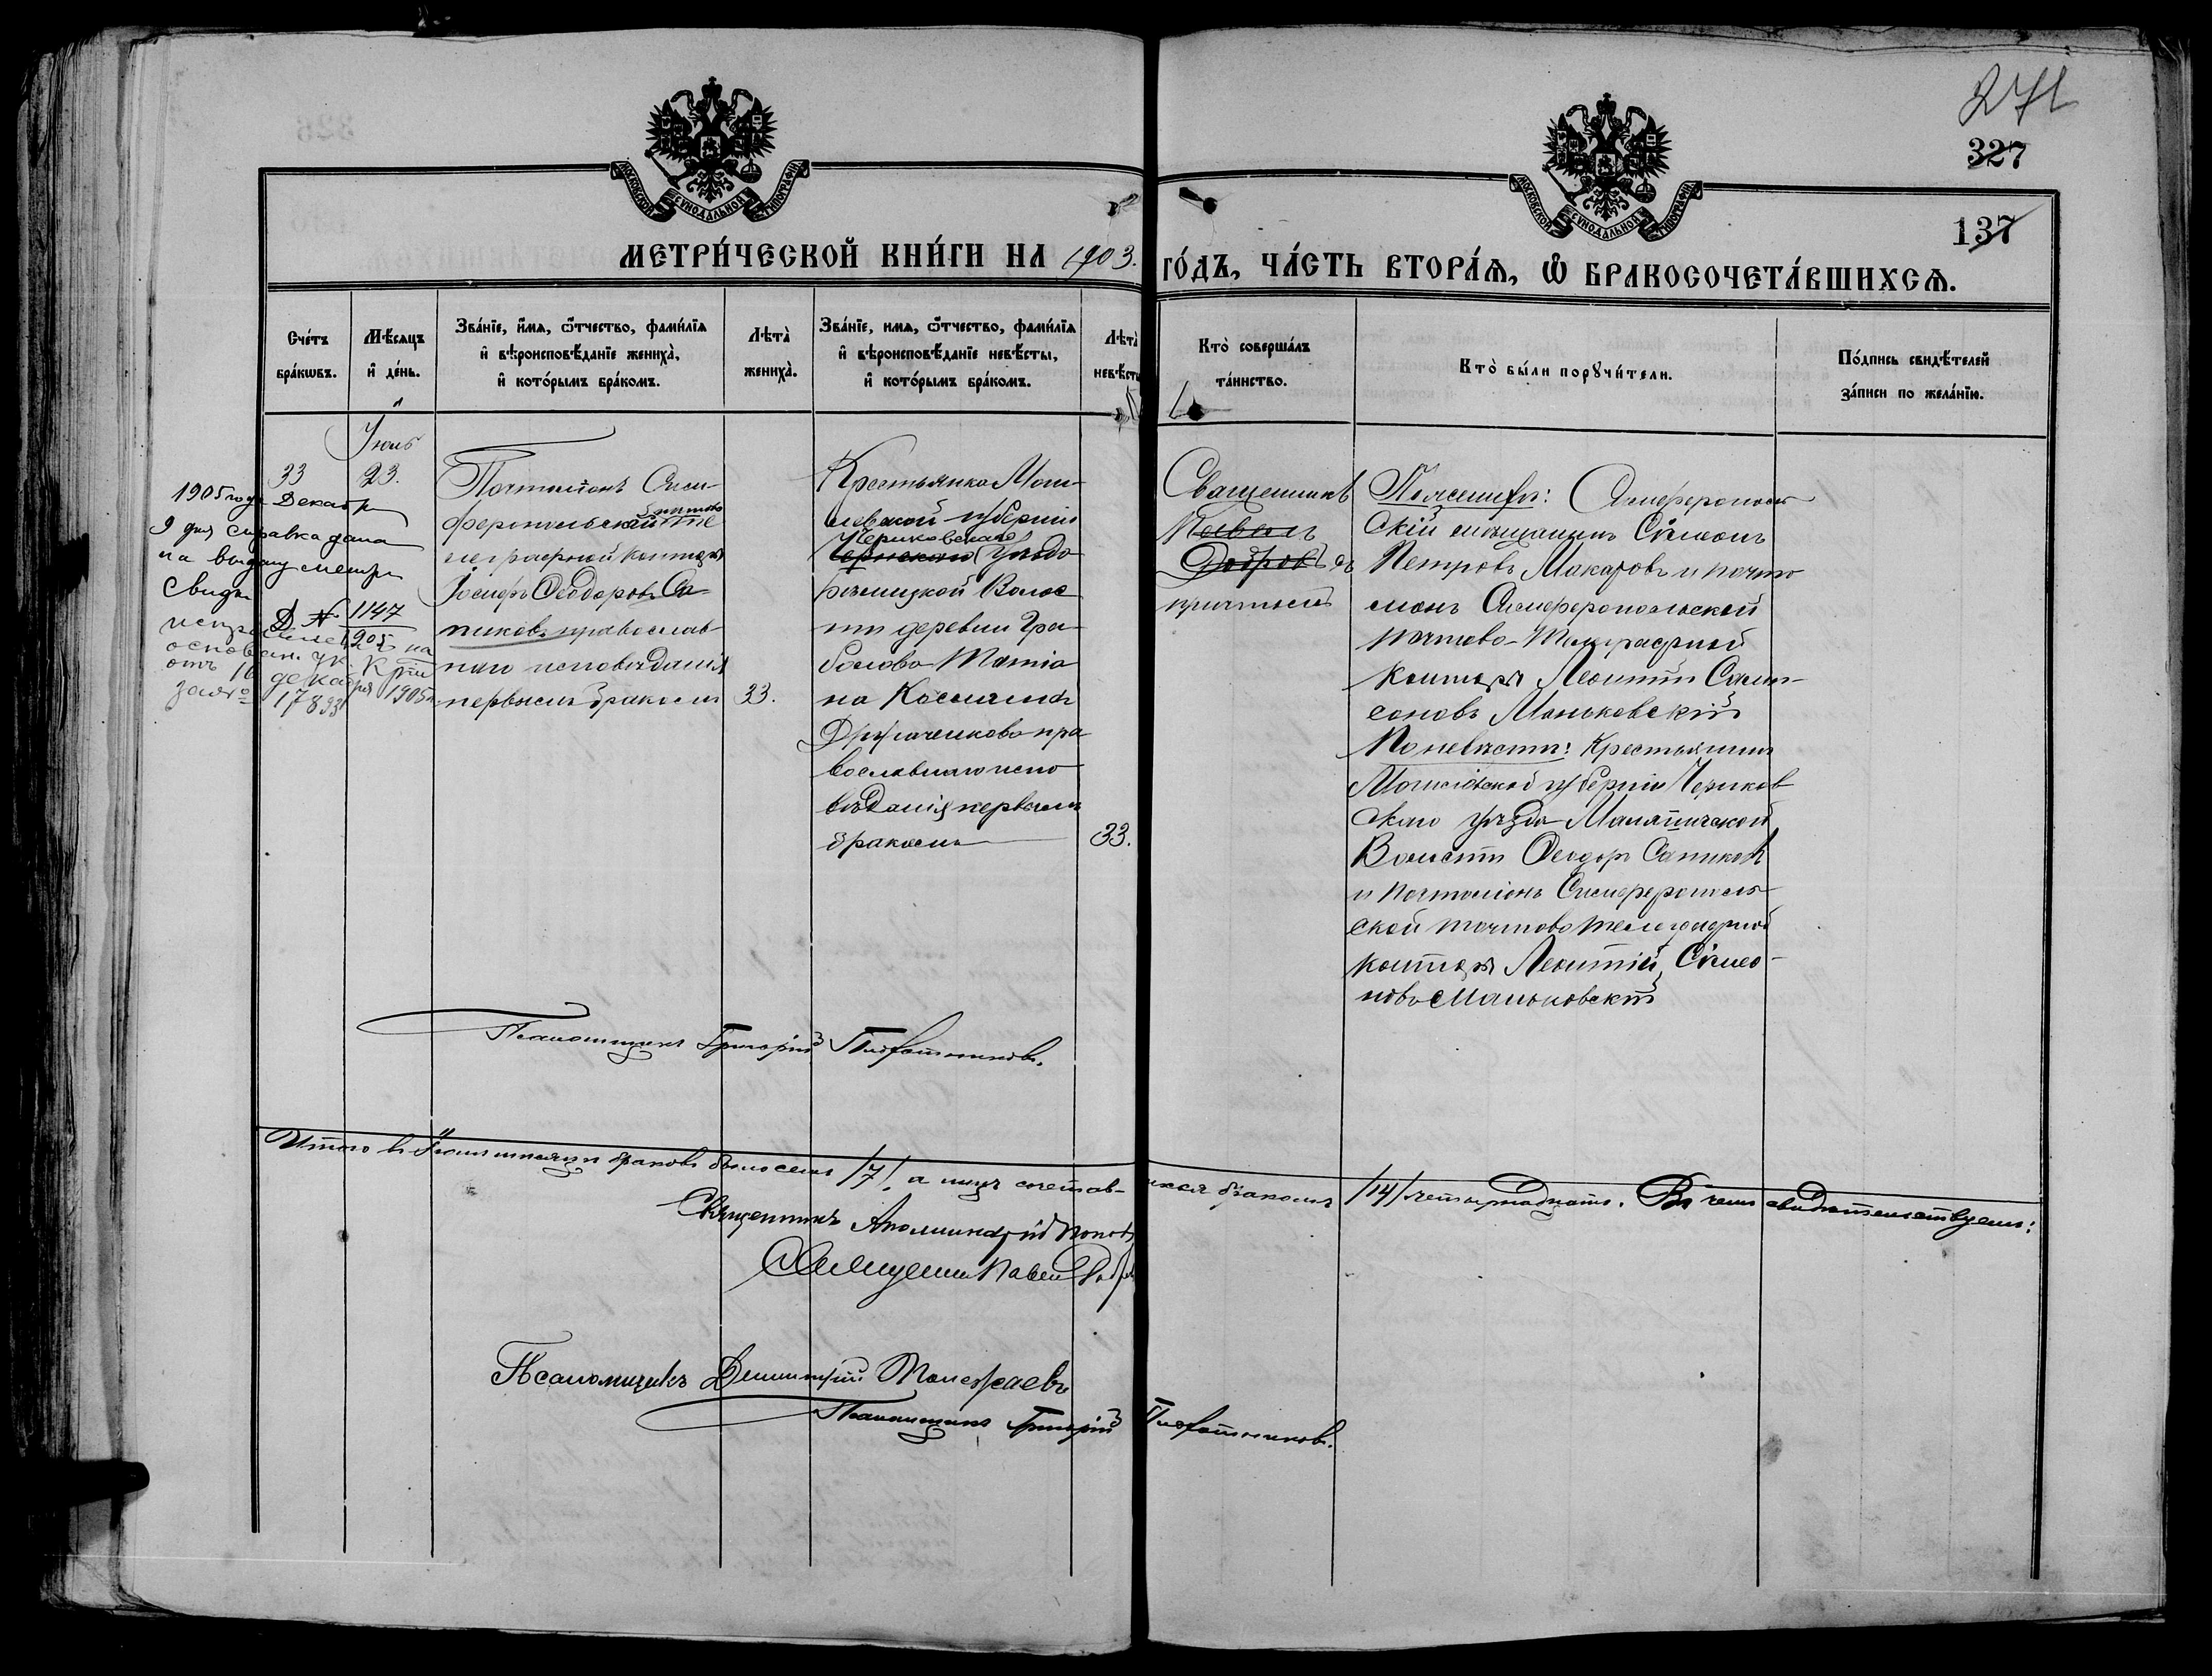 271
327
137
МОСКОВСКОЙ СѴНОДАЛЬНОЙ ТИПОГРАФІИ
МОСКОВСКОЙ СѴНОДАЛЬНОЙ ТИПОГРАФІИ
МЕТРИ́ЧЕСКОЙ КНИ́ГИ НА 1903. ГО́ДЪ, ЧА́СТЬ ВТОРА́Ѧ, Ѡ҆ БРАКОСОЧЕТА́ВШИХСѦ.
Сче́тъ
бра́кѡвъ.
Мѣ́сѧцъ
и҆ де́нь.
Зва́нїе, и҆́мѧ, ѻ҆́тчество, фами́лїѧ
и҆ вѣроисповѣ́данїе жениха̀,
и҆ кото́рымъ бра́комъ.
Лѣта̀
жениха̀.
Зва́нїе, имѧ, ѻ҆́тчество, фами́лїѧ
и҆ вѣроисповѣ́данїе невѣ́сты,
и҆ кото́рымъ бра́комъ.
Лѣта̀
невѣ́сты
Кто̀ соверша́лъ
та́инство.
Кто̀ бы́ли порꙋчи́тели.
По́дпись свидѣ́телей
за́писи по жела́нїю.
Іюль
33
23.
Почталіонъ Сим-
феропольской почтово те
леграфной конторы
Іосифъ Ѳеодоровъ Са-
пиковъ православ
наго исповѣданія
первымъ бракомъ
33.
Крестьянка Моги-
левской губерніи
Чериковскаго
уѣзда
Волос
ти деревни Гра
болова Татіа
на Космина
пра
вославнаго испо
вѣданія первымъ
бракомъ
33.
Священникъ
Павелъ
Добровъ съ
причтомъ
По женихѣ: Симферополь
скій мѣщанинъ Сѵмеонъ
Петровъ Макаровъ и почта
ліонъ Симферопольской
почтово-Телеграфной
конторы Леонтій Симе-
оновъ Маньковскій
По невѣстѣ: Крестьянинъ
Могилевской губерніи Чериков
скаго уѣзда Малятичской
Волости Ѳеодоръ Сапиковъ
и почталіонъ Симферополь-
ской почтово телеграфной
конторы Леонтій Сѵмео-
новъ Маньковскій
1905 года Декабр
9 дня справка дана
на выдачу метр
Свидѣ
Д № 1147
1905
на
основан. ук.
отъ 10 декабря 1905 г.
за № 17893
Псаломщикъ Григорій
Итого въ Іюлѣ мѣсяцѣ браковъ было семь /7/, а лицъ сочетав-шихся бракомъ /14/ четырнадцать. Въ чемъ свидѣтельствуемъ:
Священникъ Аполлинарій Поповъ
Священникъ Павелъ Добр
Псаломщикъ Димитрій
Псаломщикъ Григорій